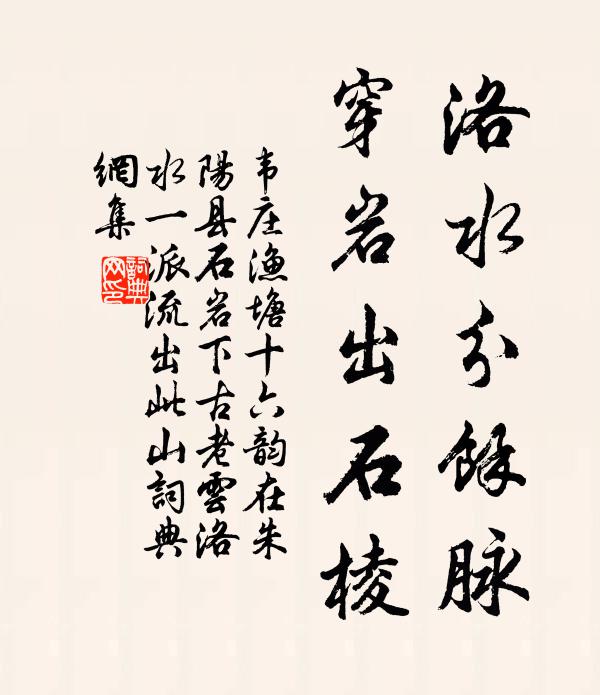 洛水分餘脉
穿岩出石棱
韦庄漁塘十六韵在朱
陽县石岩下古老雲洛
水一派流出此山詞典
網集
詞典網印